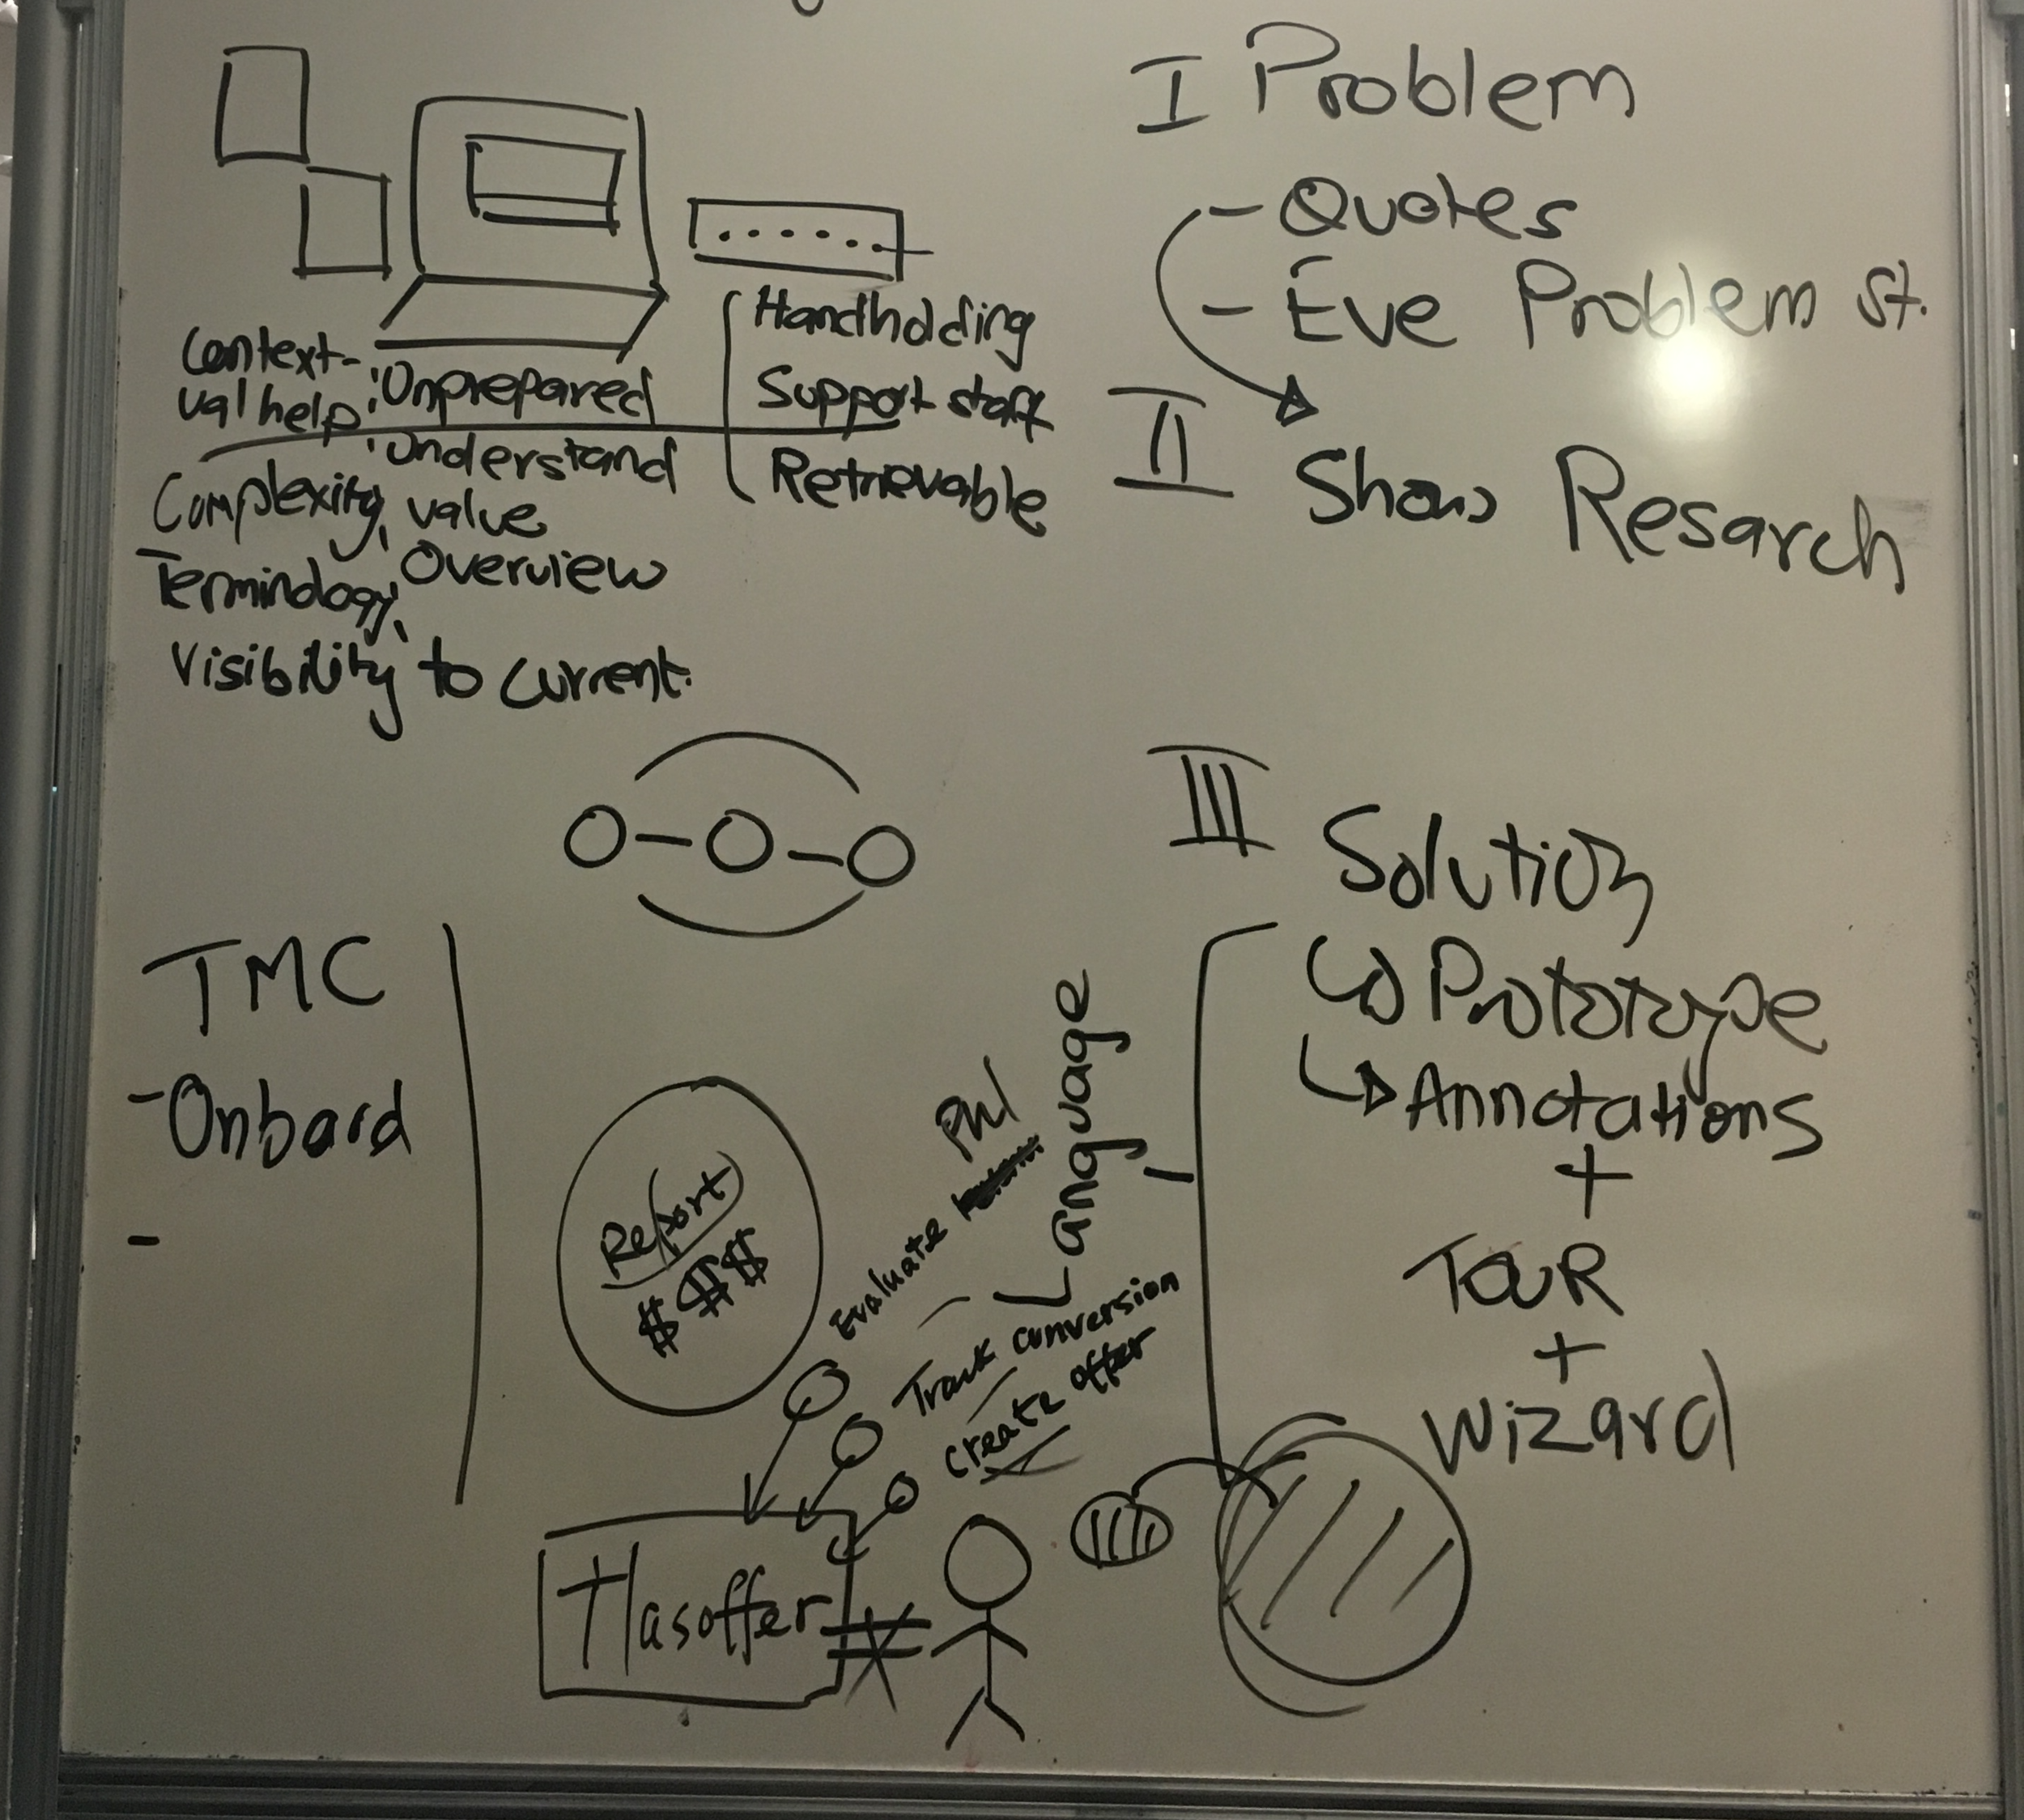 I Problem
- Quotes
- Eve Problem st.
II
Show Resarch
Handholding
Support staff
Retrievable
Context-
ual help; Unprepared
Understand
Complexity, value
Terminology, Overview
Visibility to current.
III
Solution
Prototype
Annotations
+
TOUR
+
Wizard
TMC
- Onboard
-
Report
$ $$$
Evaluate
Language
Track conversion
Create offer
Hasoffer